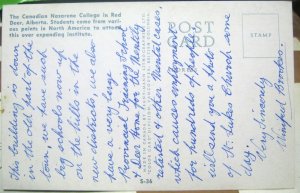 The Canadian Nazarene College in Red
Deer, Alberta. Students come from var-
ious points in North America to attend
this ever expanding institute.
POST
CARD
STAMP
S-36
This building is down
in the old part of the
town, we have some
big schools now up
on the hills in the
new districts, we also
have a very large
Provincial Training School
& Deer Home for the Mentally
and other Mental cases,
which causes employment
for hundreds of people,
will send you a photo
of St. Lukes Church some
day.
Very Sincerely
Winifred